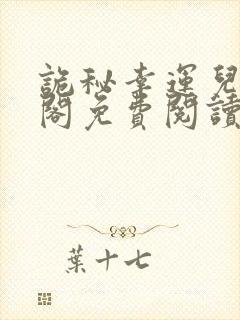 詭秘幸運兒
閣免費閱讀
葉十七